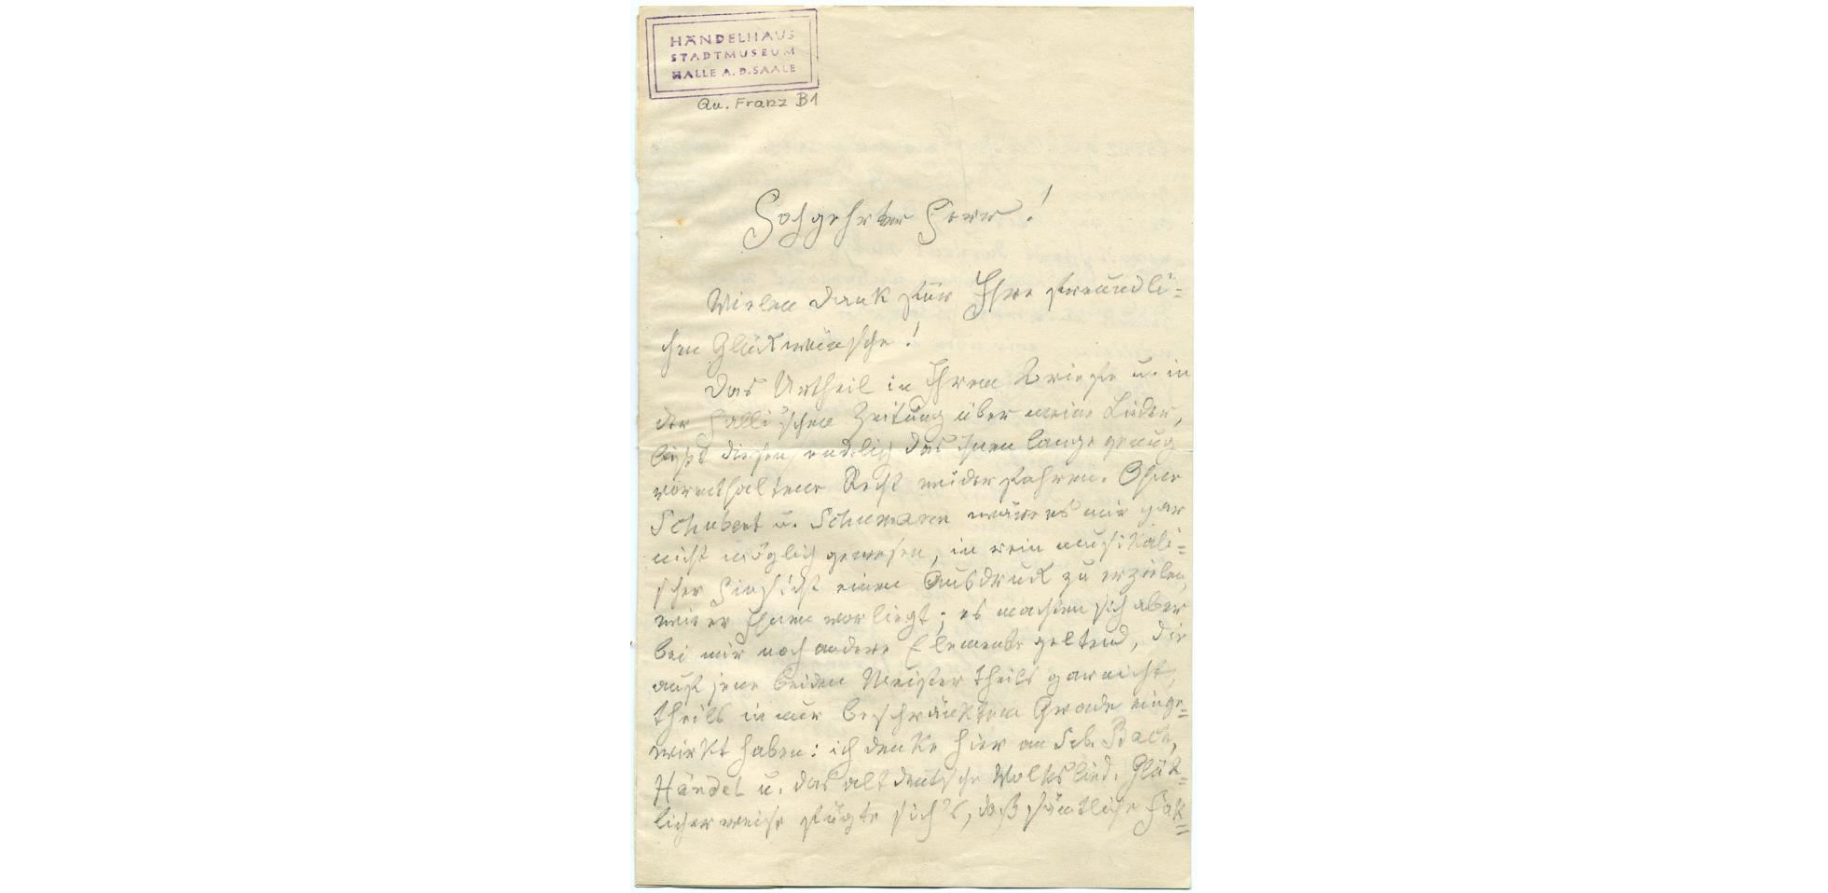 HÄNDELHAUS
STADTMUSEUM
HALLE A. D. SAALE
Qu. Franz B1
Hochgeehrter Herr!
Vielen Dank für Ihre freundli=
chen Glückwünsche!
Das Urtheil in Ihrem Briefe u. in
der Halli'schen Zeitung über meine Lieder,
läßt diesen endlich das ihnen lange genug
vorenthaltene Recht widerfahren. Ohne
Schubert u. Schumann wäre es mir gar
nicht möglich gewesen, in rein musikali=
scher Hinsicht einen Ausdruck zu erzielen,
wie er Ihnen vorliegt; es machten sich aber
bei mir noch andere Elemente geltend, die
auf jene beiden Meister theils gar nicht,
theils in nur beschränktem Grade einge=
wirkt haben: ich denke hier an Seb. Bach,
Händel u. das altdeutsche Volkslied. Glück=
licherweise fügte sich's, daß sämtliche Fak=